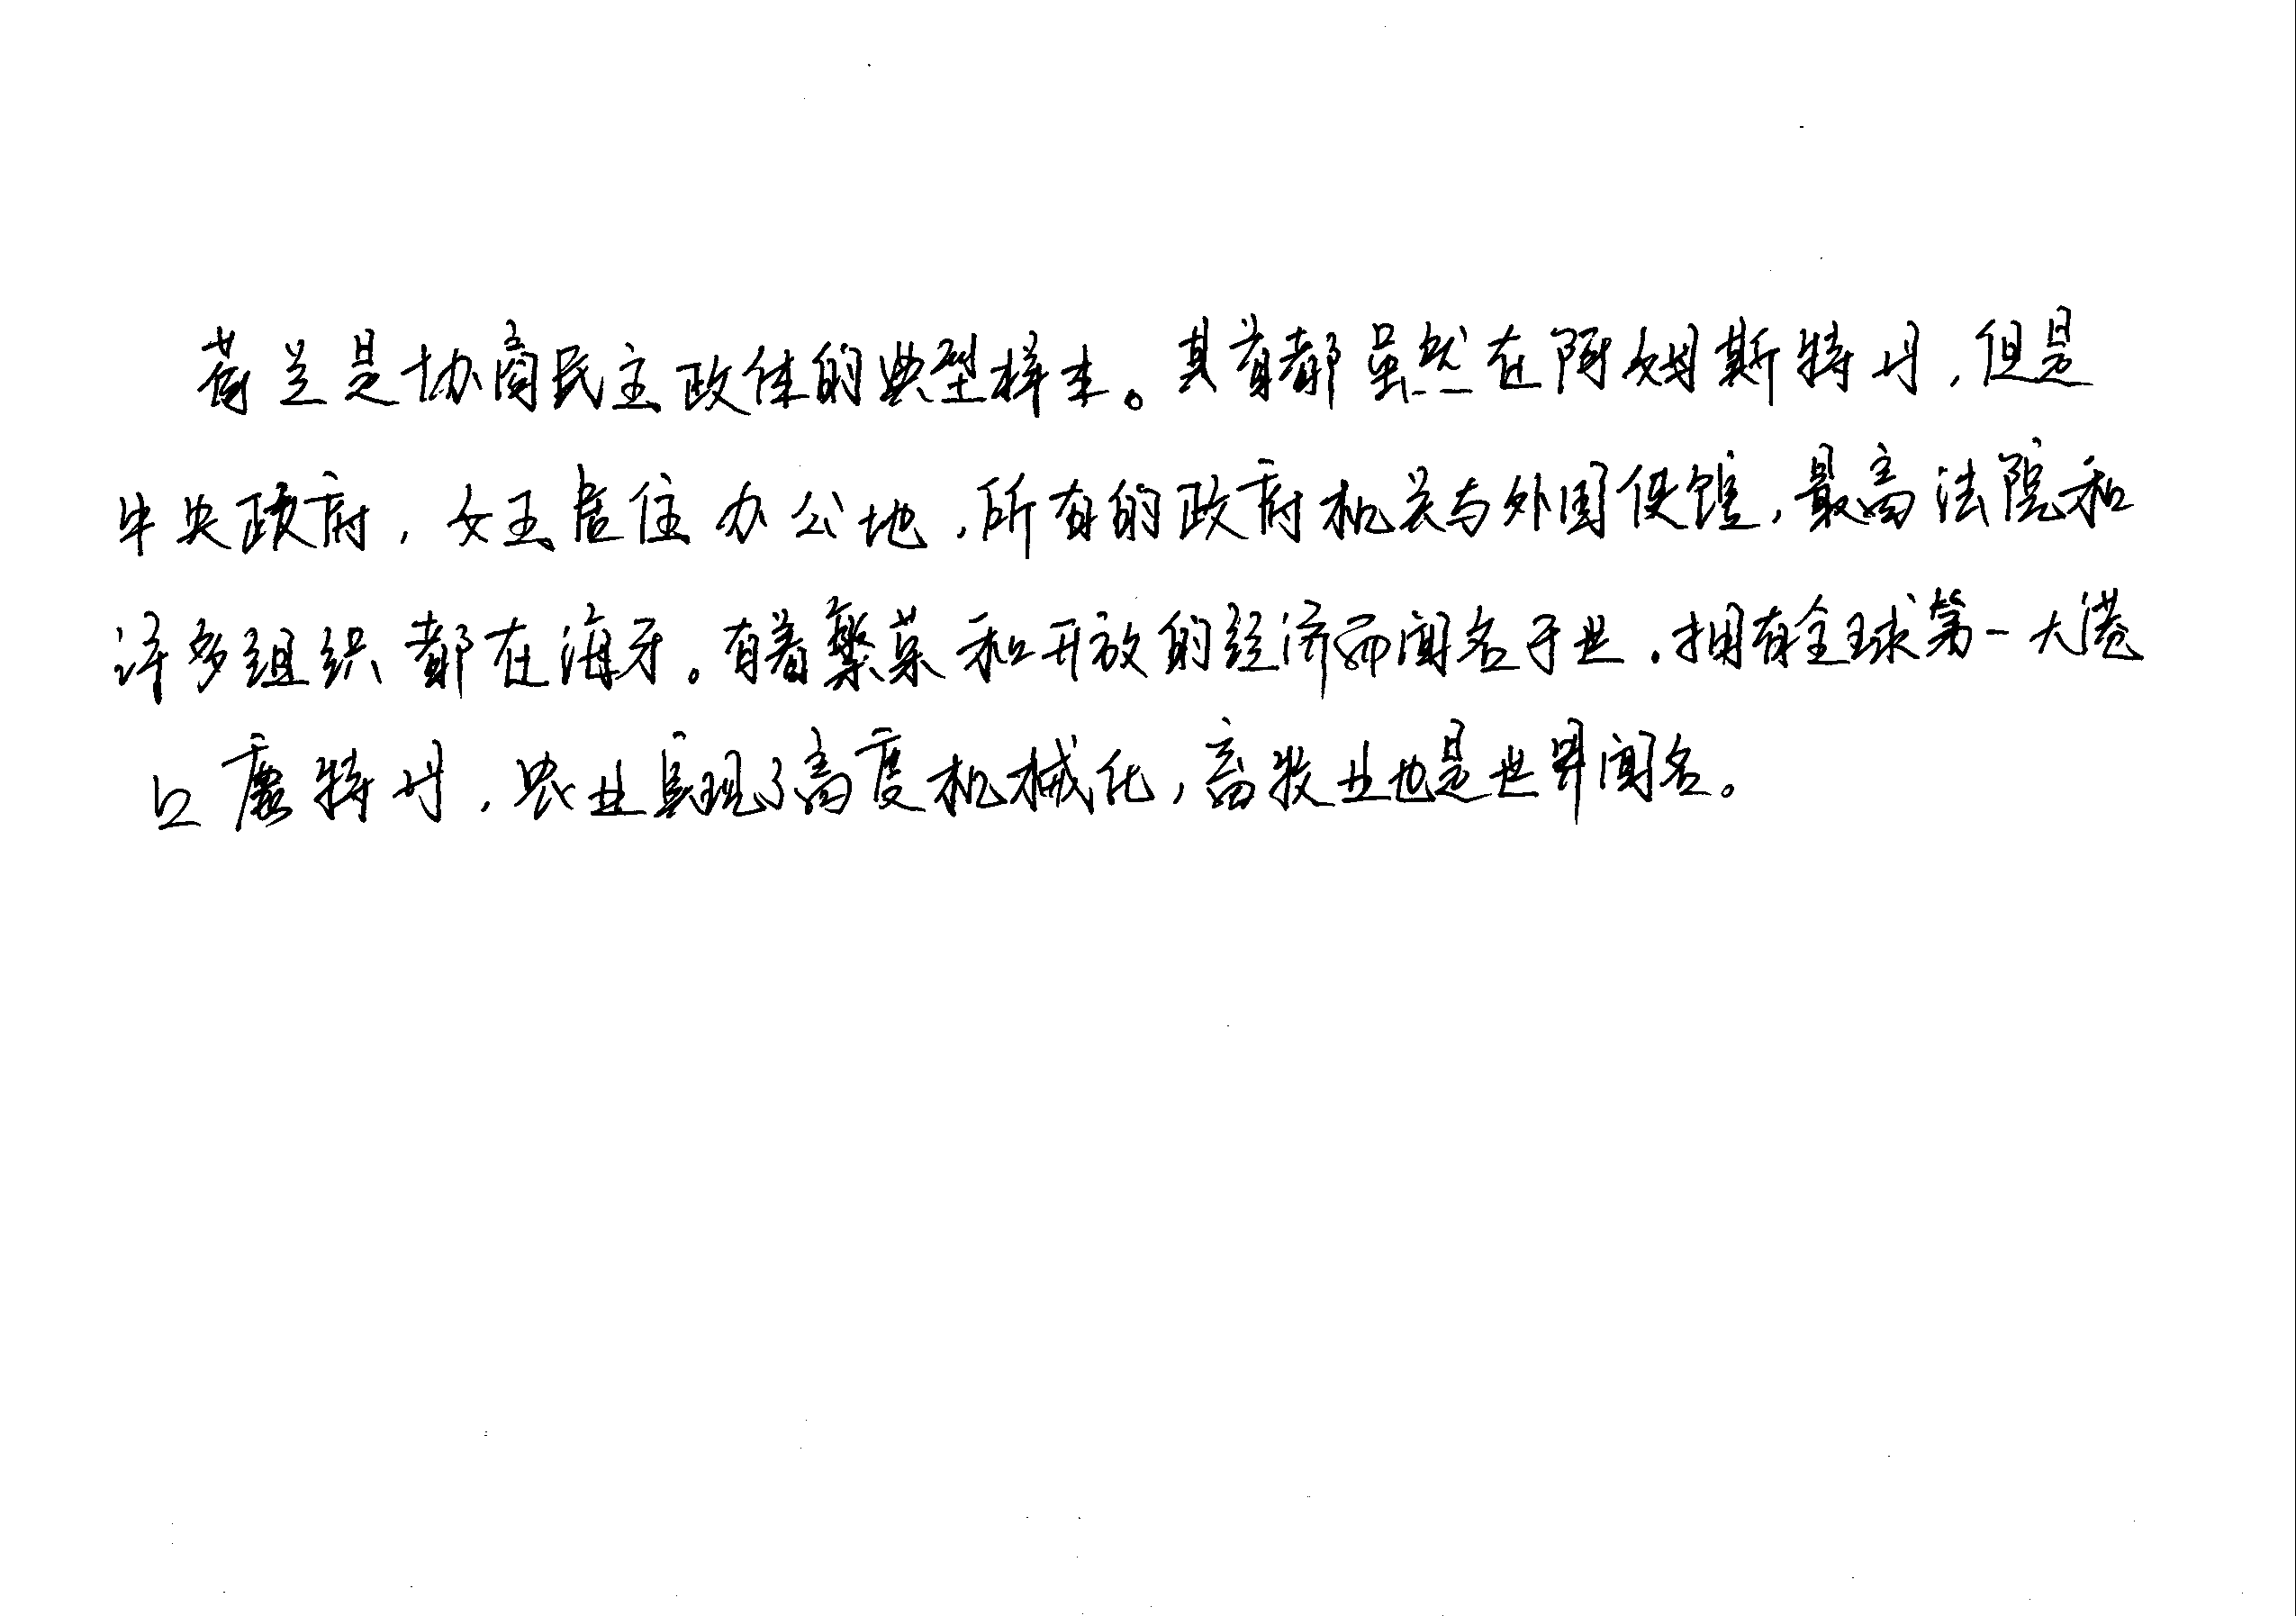 荷兰是协商民主政体的典型样本。其首都虽然在阿姆斯特丹,但是
中央政府,女王居住办公地,所有的政府机关与外国使馆,最高法院和
许多组织都在海牙。有着繁荣和开放的经济而闻名于世.拥有全球第一大港
口鹿特丹,农业实现了高度机械化,畜牧业也是世界闻名。